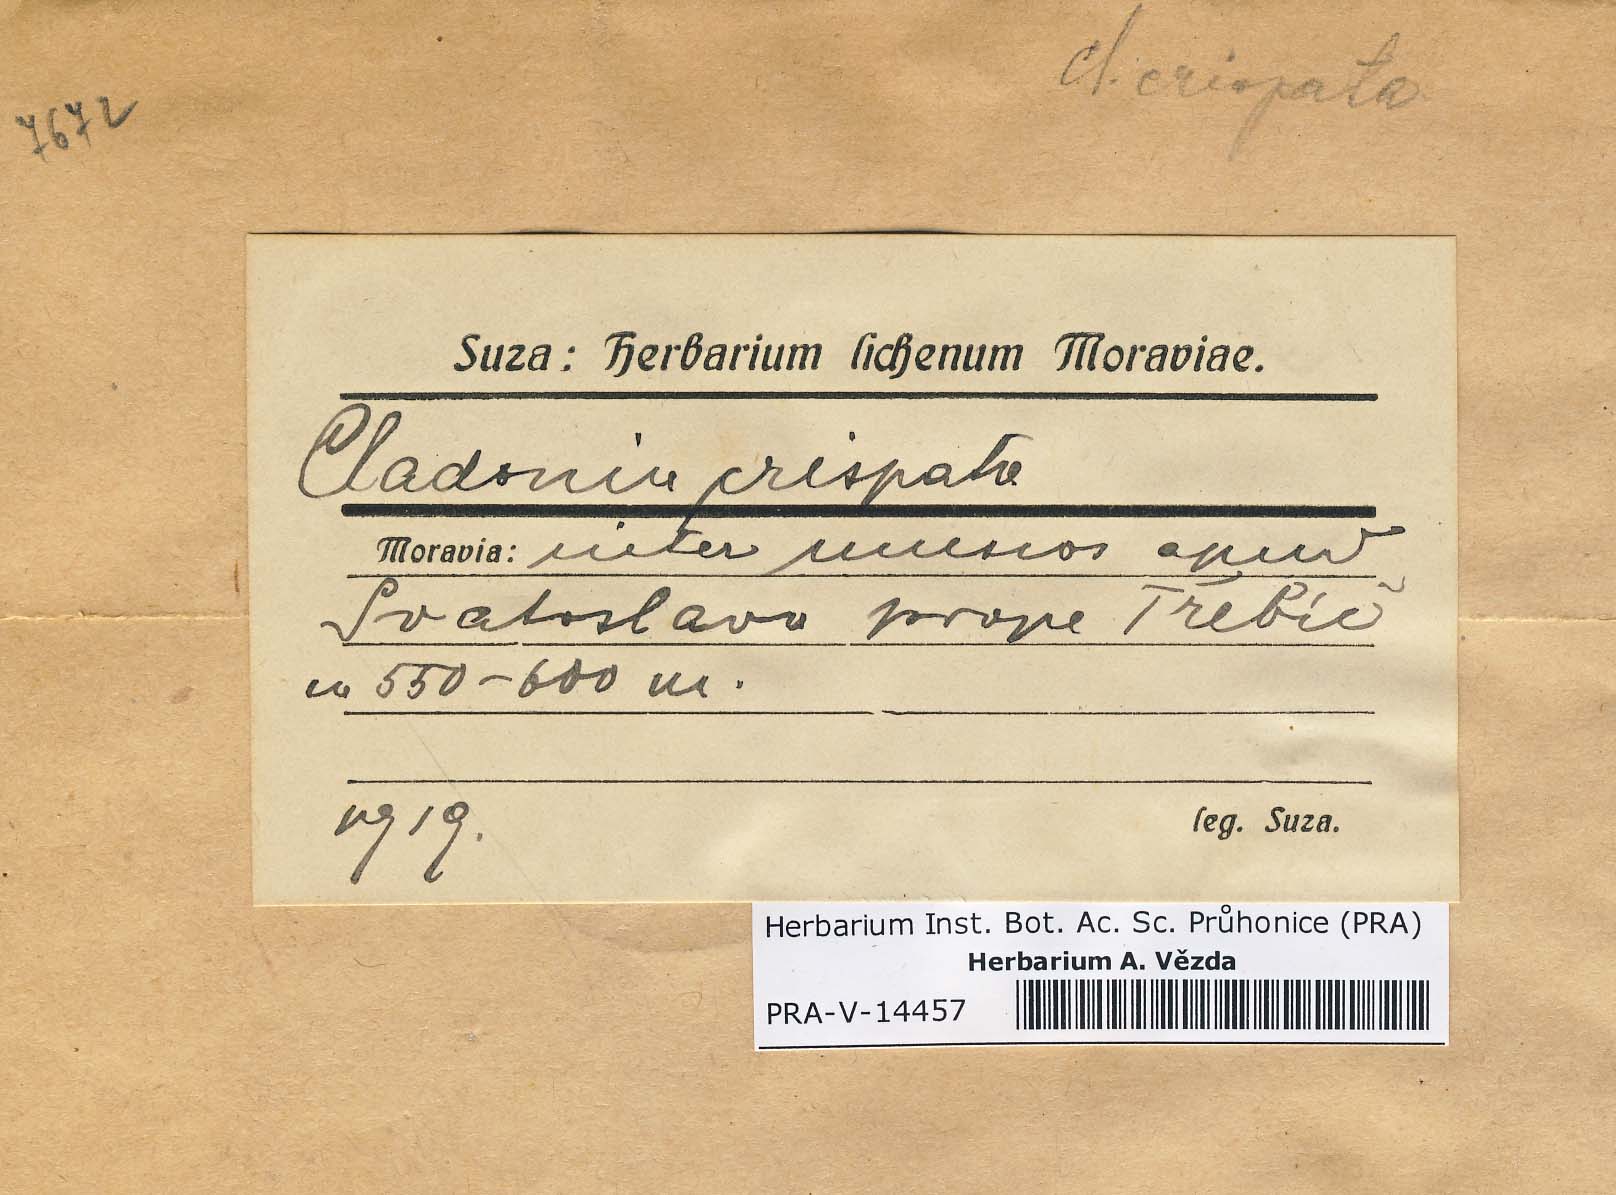 Cl. crispata
7672
Suza: Herbarium lichenum Moraviae.
Cladonia crispata
Moravia: inter muscos apud
Svatoslava prope Třebíč
ca 550-600 m.
1919.
leg. Suza.
Herbarium Inst. Bot. Ac. Sc. Průhonice (PRA)
Herbarium A. Vězda
PRA-V-14457